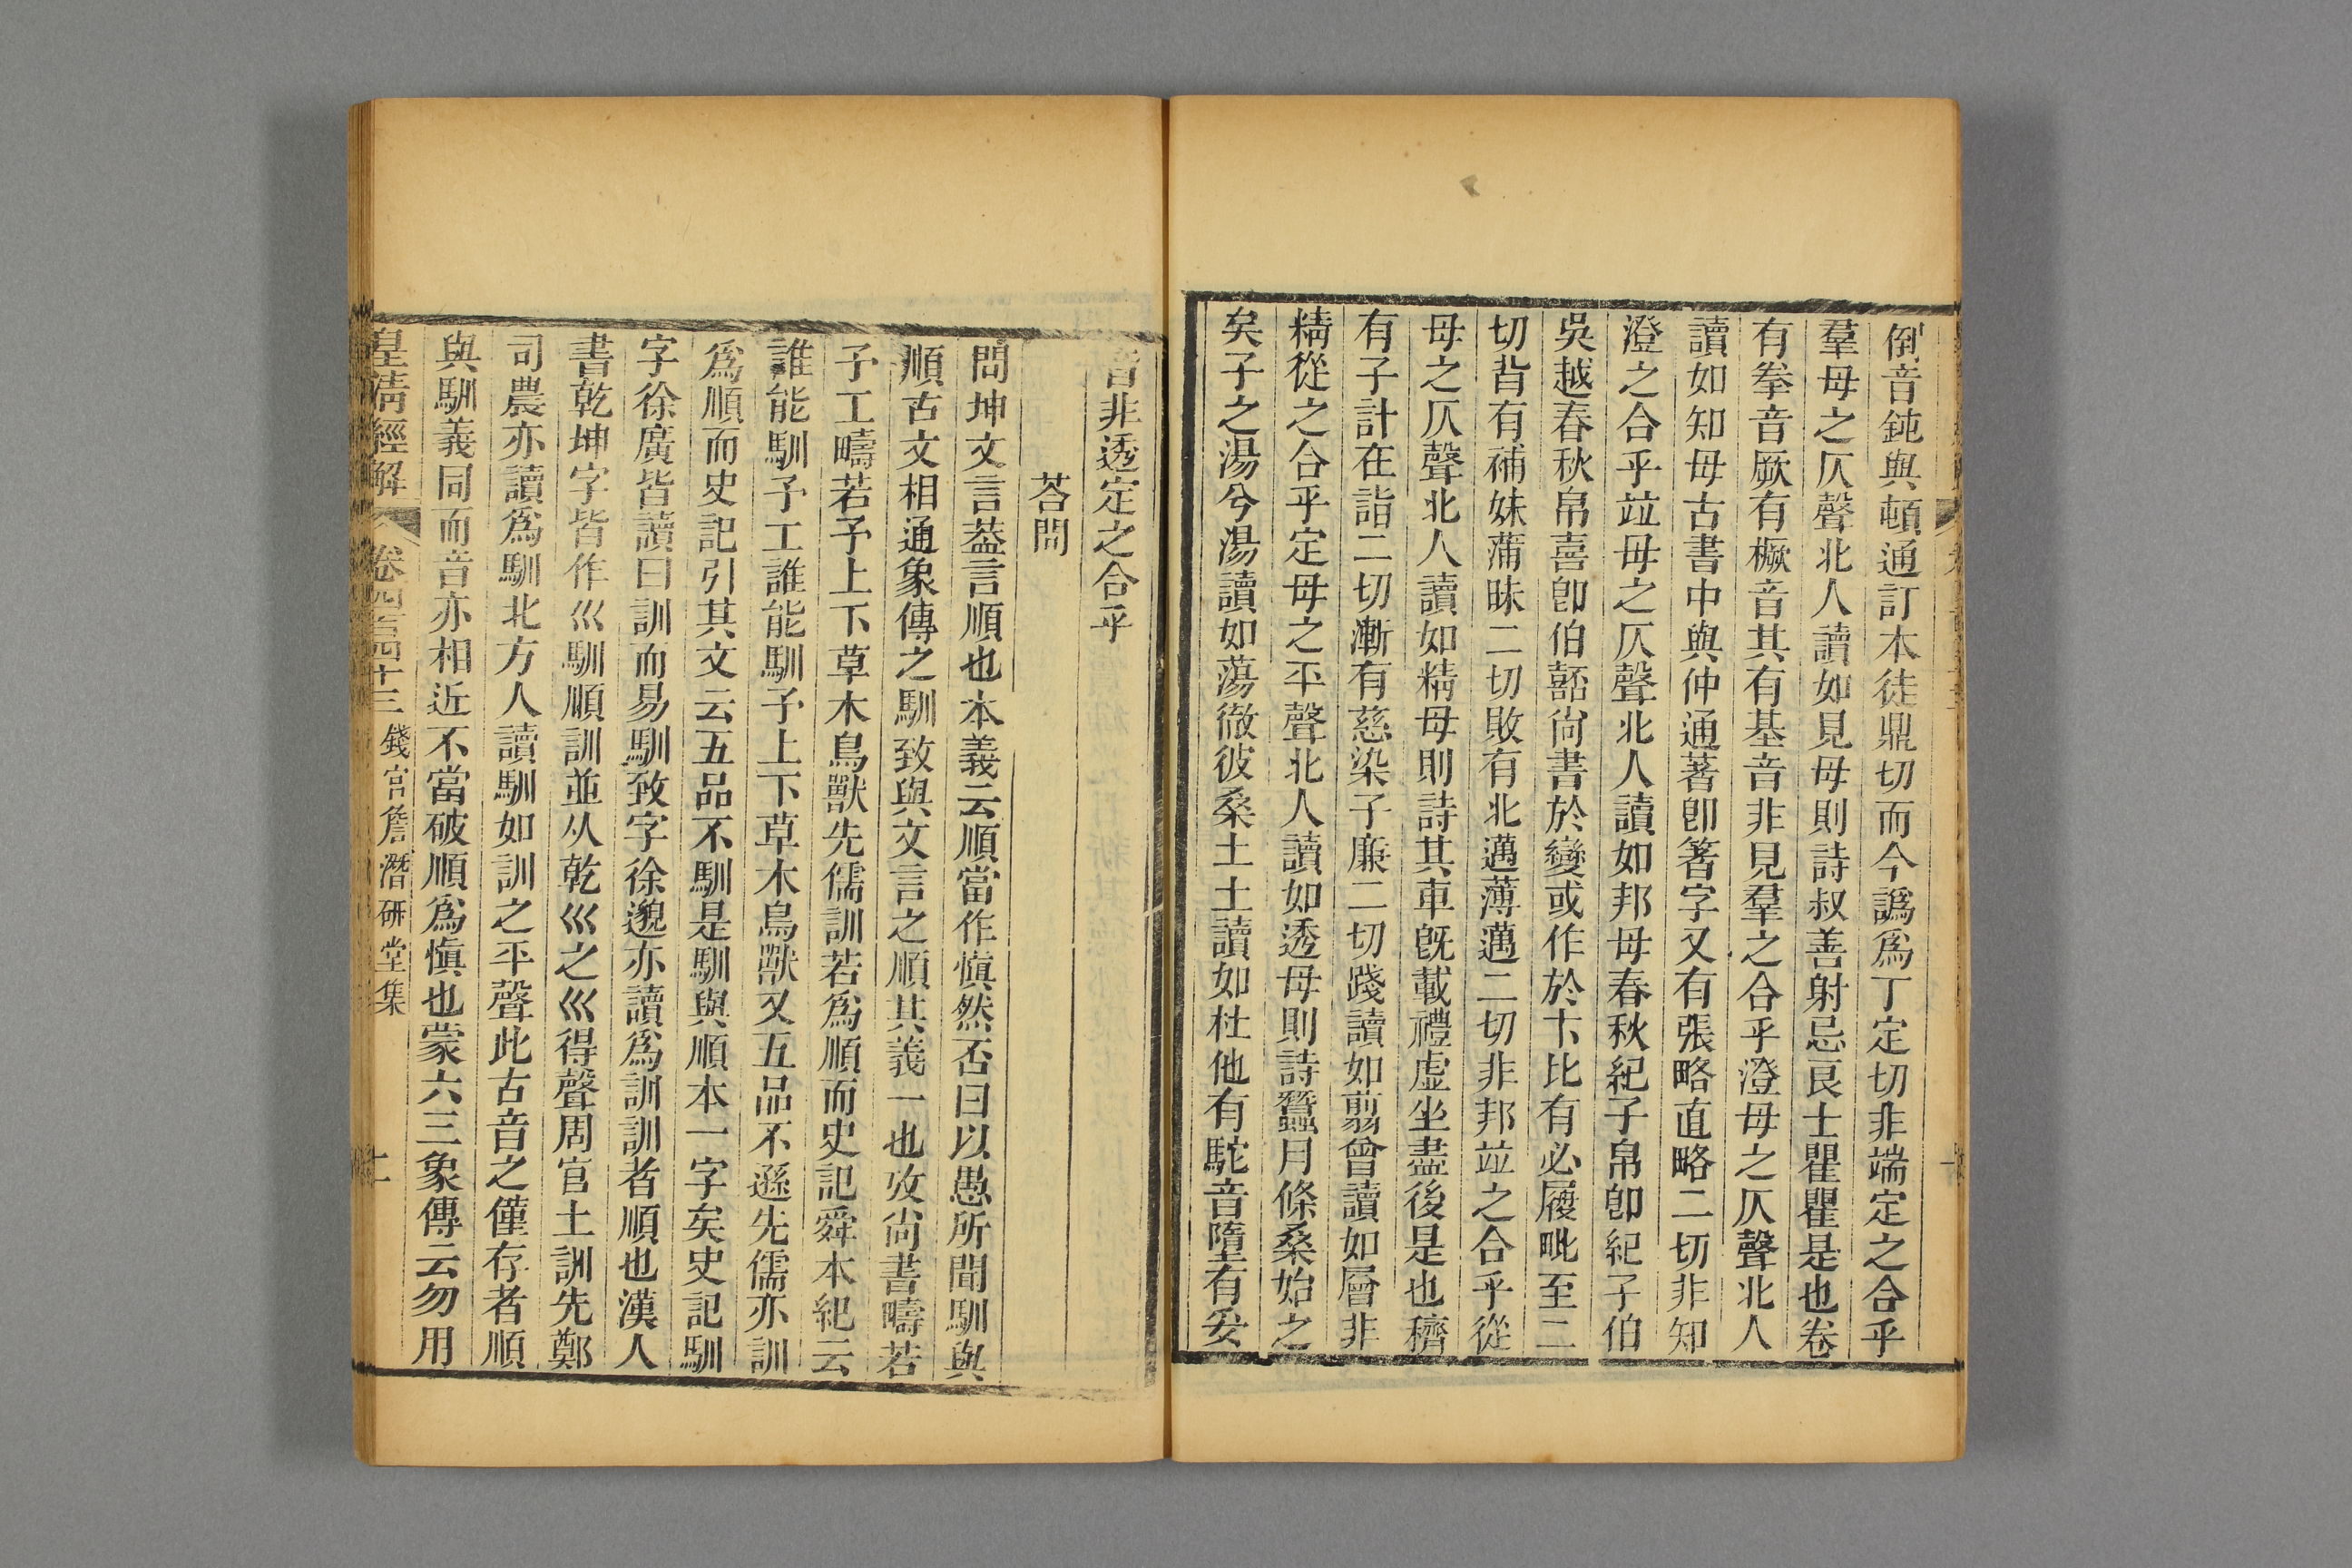 倒音鈍與頓通訂本徒鼎切而今譌爲丁定切非端定之合乎
羣母之仄聲北人讀如見母則詩叔善射忌良士瞿瞿是也卷
有拳音厥有橛音其有基音非見羣之合乎澄母之仄聲北人
讀如知母古書中與仲通著卽箸字又有張略直略二切非知
澄之合乎竝母之仄聲北人讀如邦母春秋紀子帛卽紀子伯
吳越春秋帛喜卽伯嚭尙書於變或作於卞比有必履毗至二
切背有補妹蒲昧二切敗有北邁薄邁二切非邦竝之合乎從
母之仄聲北人讀如精母則詩其車旣載禮虛坐盡後是也穧
有子計在詣二切漸有慈染子廉二切踐讀如翦曾讀如層非
精從之合乎定母之平聲北人讀如透母則詩蠶月條桑始之
矣子之湯兮湯讀如蕩徹彼桑土土讀如杜他有駝音墮有妥
音非透定之合乎
荅問
問坤文言葢言順也本義云順當作愼然否曰以愚所聞馴與
順古文相通象傳之馴致與文言之順其義一也攷尙書疇若
予工疇若予上下草木鳥獸先儒訓若爲順而史記舜本紀云
誰能馴予工誰能馴予上下草木鳥獸又五品不遜先儒亦訓
爲順而史記引其文云五品不馴是馴與順本一字矣史記馴
字徐廣皆讀曰訓而易馴致字徐邈亦讀爲訓訓者順也漢人
書乾坤字皆作巛馴順訓並从乾巛之巛得聲周官土訓先鄭
司農亦讀爲馴北方人讀馴如訓之平聲此古音之僅存者順
與馴義同而音亦相近不當破順爲愼也蒙六三象傳云勿用
皇淸經解 卷四百四十三 錢宮詹潛硏堂集